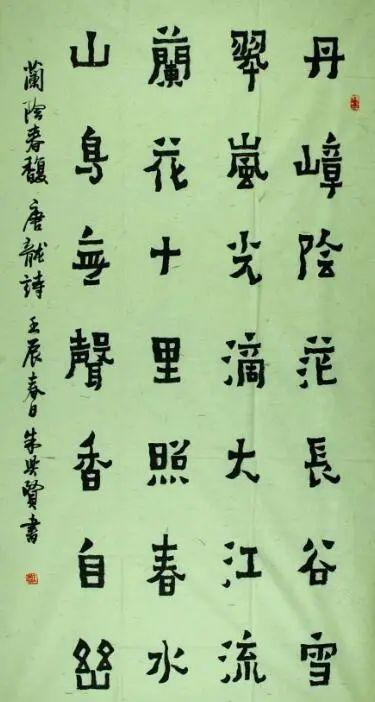 丹嶂陰茫長谷雪
翠嵐光滴大江流
蘭花十里照春水
山鳥無聲香自幽
蘭陰春馥 唐龍詩 壬辰春日 朱賢書